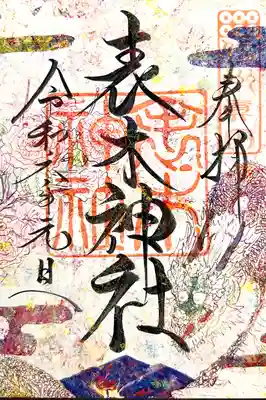 奉拝
表木神社
令和六年元日